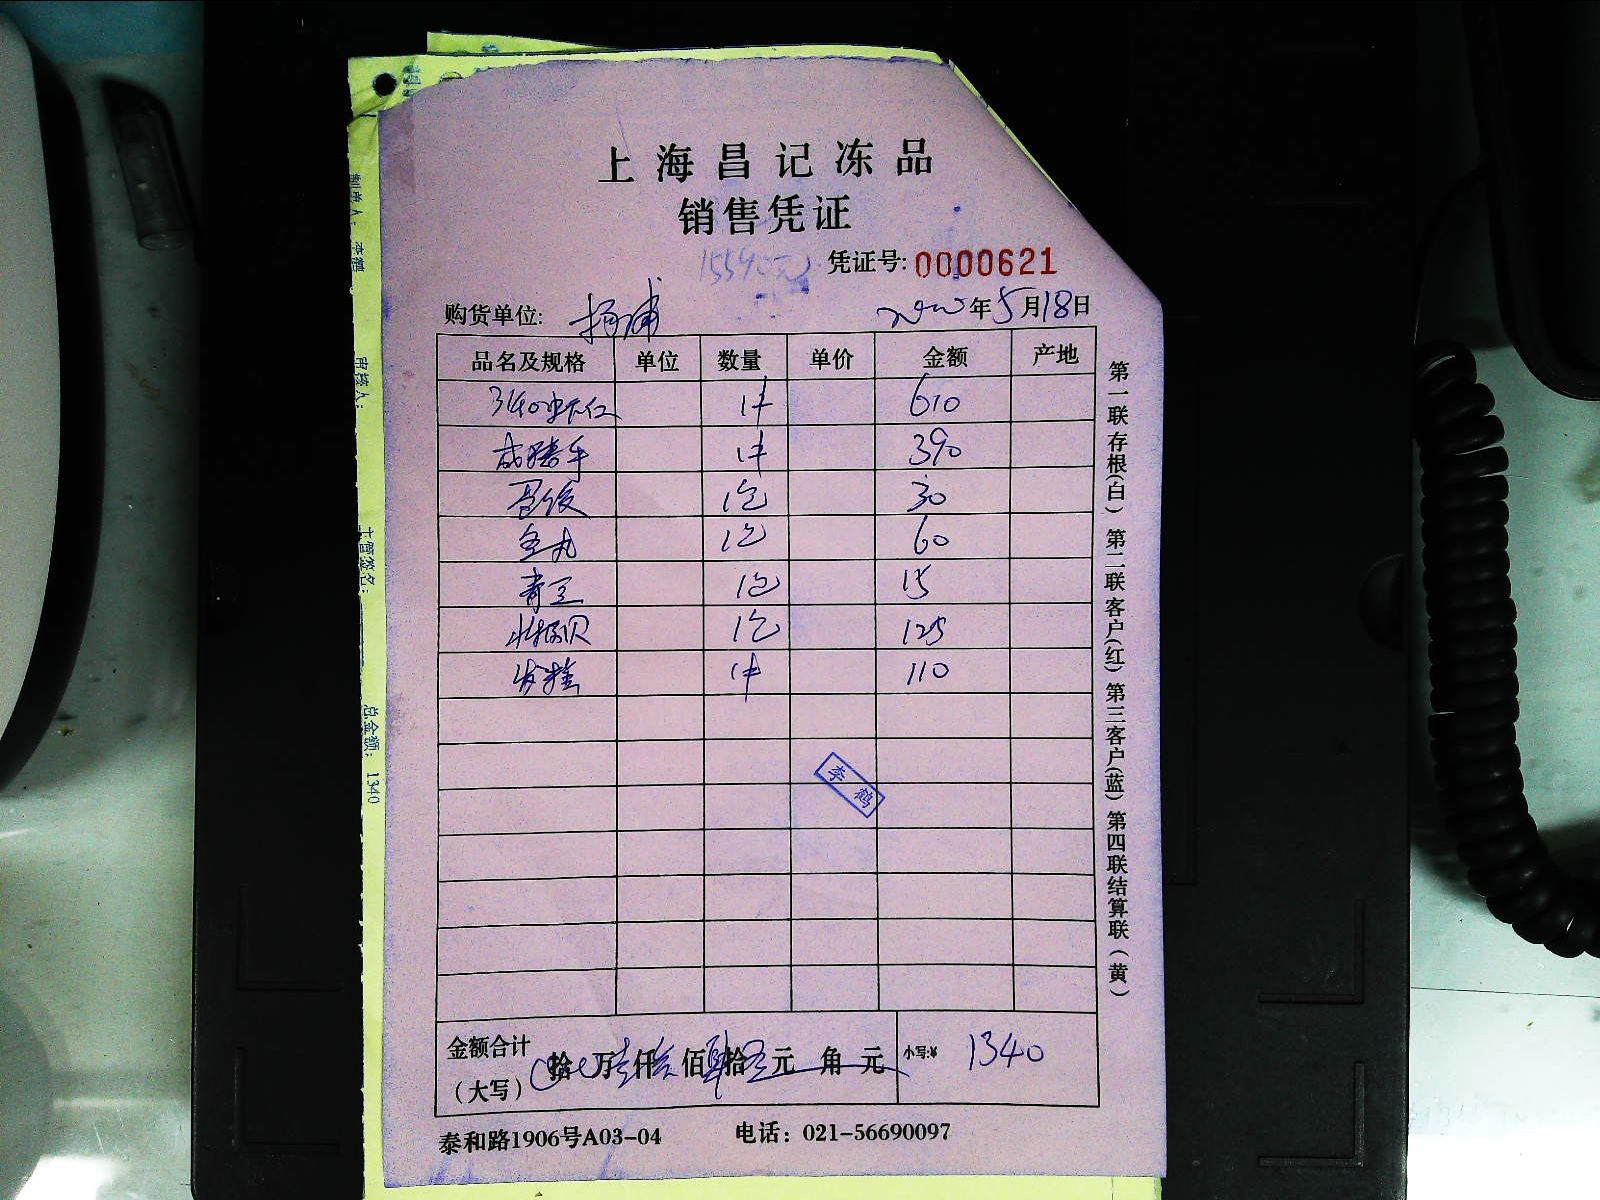 上海昌记冻品
销售凭证
凭证号: 0000621
购货单位: 杨浦 年5月18日
品名及规格 单位 数量 单价 金额 产地
3140虾仁 1件 610
1件 390
1包 30
1包 60
青豆 1包 15
1包 125
1件 110
李鹤
金额合计
(大写) 拾 万 仟 佰 肆拾 元 角 元 小写:¥ 1340
泰和路1906号A03-04 电话: 021-56690097
第一联存根(白) 第二联客户(红) 第三客户(蓝) 第四联结算联(黄)
制单人: 李鹤
审核人:
主管签名:
总金额: 1340